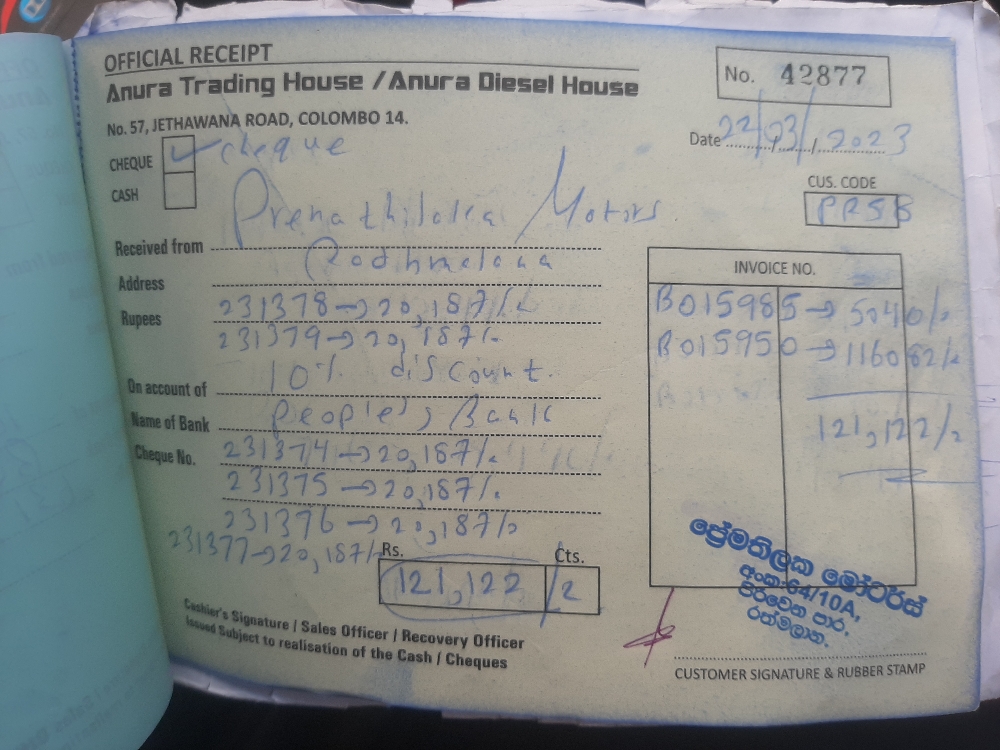 OFFICIAL RECEIPT
Anura Trading House / Anura Diesel House
No. 57, JETHAWANA ROAD, COLOMBO 14.
No. 42877
Date 22/03/2023
CHEQUE ✓ cheque
CASH
CUS. CODE
PRSB
Received from Premathilaka Motors
Address Rathmalana
Rupees 231378→20,187/-
231379→20,187/-
On account of 10% discount.
Name of Bank People's Bank
Cheque No. 231374→20,187/-
231375→20,187/-
231376→20,187/-
231377→20,187/-
Rs. Cts.
121,122/-
INVOICE NO.
B015985→5040/-
B015950→116082/-
121,122/-
Cashier's Signature / Sales Officer / Recovery Officer
Issued Subject to realisation of the Cash / Cheques
ප්‍රේමතිලක මෝටර්ස්
අංක 64/10A,
පිරිවෙන පාර,
රත්මලාන.
CUSTOMER SIGNATURE & RUBBER STAMP